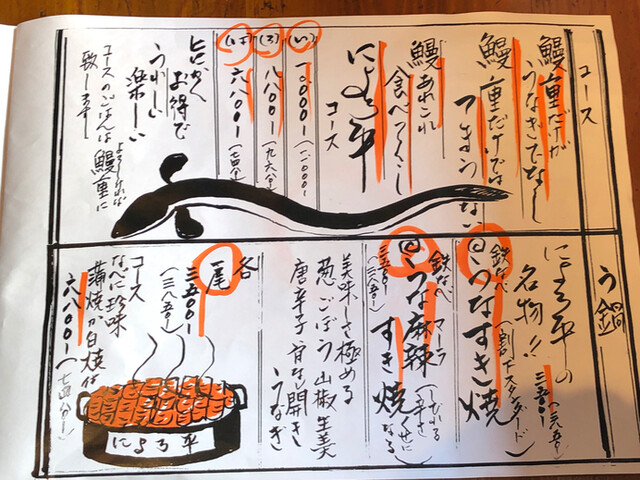 コース
鰻重だけが
うなぎでなし
鰻重だけでは
つまらない
鰻あれこれ
食べつくし
によろ平
コース
(い) 一〇〇〇〇- (一一〇〇〇-)
(ろ) 八八〇〇- (九六八〇-)
(は) 六八〇〇- (七四八〇-)
とにかく
お得で
うれしい
楽しい
コースのごはんは鰻重に
う鍋
によろ平の
名物!!
鉄なべ
うなすき焼
(割下スタンダード)
三五〇〇- (三八五〇-)
鉄なべ マーラ
うな麻辣すき焼
(しびれる辛さくせになる)
三五〇〇- (三八五〇-)
美味しさ極める
葱ごぼう山椒生姜
唐辛子 背なし開き
うなぎ
各一尾
三五〇〇-
(三八五〇-)
コース
なべに珍味
蒲焼か白焼は
六八〇〇- (七四八〇-)
によろ平